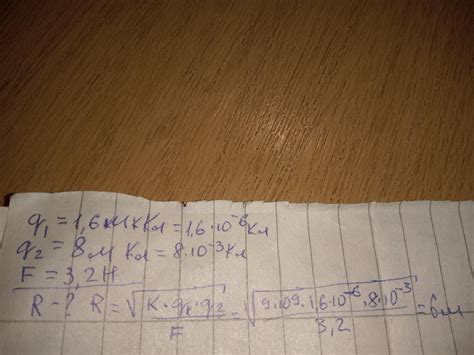 q₁ = 1,6 мкКл = 1,6·10⁻⁶ Кл
q₂ = 8 м Кл = 8·10⁻³ Кл
F = 3,2 Н
R - ? R = √(K·q₁·q₂ / F) = √(9·10⁹·1,6·10⁻⁶·8·10⁻³ / 3,2) = 6 м